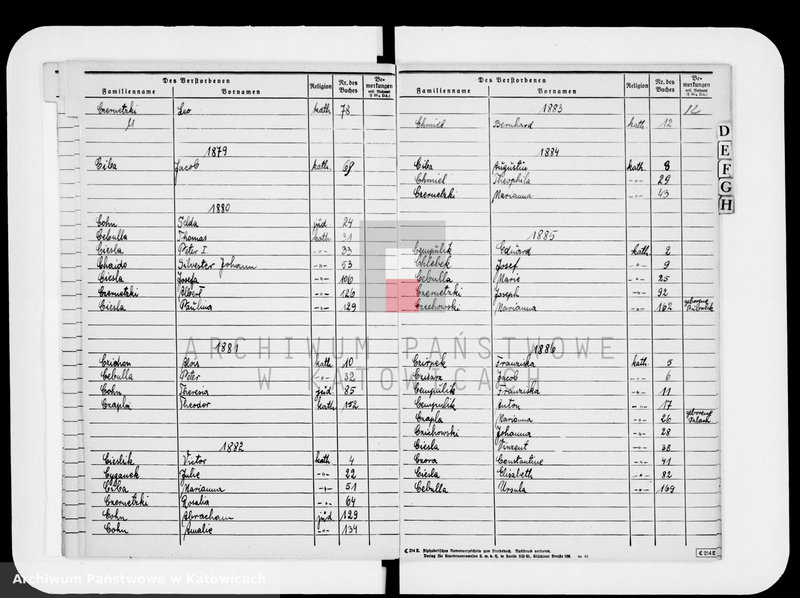 Des Verstorbenen
Familienname Vornamen Religion Nr. des Buches Bemerkungen
Czernetzki Leo kath. 78
1879
Ciba Jacob kath. 69
1880
Cohn jüd. 24
Cebulla Thomas kath. 31
Ciesla Peter I. -"- 33
Silvester Johann -"- 53
Ciesla Josefa -"- 106
Czernetzki Albert -"- 126
Ciesla Paulina -"- 129
1881
Alois kath. 10
Cebulla Peter -"- 32
Cohn Theresia jüd. 85
Czapla Theodor kath. 152
1882
Cieslik Victor kath. 4
Cyganek Julie -"- 22
Ciba Marianna -"- 51
Czernetzki Rosalia -"- 64
Cohn Abracham jüd. 129
Cohn Amalie -"- 134
Des Verstorbenen
Familienname Vornamen Religion Nr. des Buches Bemerkungen
1883
12
Chmiel Bernhard kath. 12
1884
Ciba Augustin kath. 8
Chmiel Theophila -"- 29
Czernetzki Marianna -"- 43
1885
Cempulik Eduard kath. 2
Chlebek Josef -"- 9
Cebulla Marie -"- 25
Czernetzki Joseph -"- 92
Czechowski Marianna -"- 162 geborene
1886
Franziska kath. 5
Jacob -"- 6
Cempulik Franziska -"- 11
Cempulik Anton -"- 17
Czapla Marianna -"- 26 geborene
Czichowski Johanna -"- 28
Ciesla Vinzent -"- 38
Czora Constantine -"- 41
Ciesla Elisabeth -"- 82
Cebulla Ursula -"- 169
D
E
F
G
H
ARCHIWUM PAŃSTWOWE
W KATOWICACH
C 214 E. Alphabetisches Namensverzeichnis zum Sterbebuch. Nachdruck verboten.
Verlag für Standesamtswesen G. m. b. H. in Berlin SW 61, Gitschiner Straße 109.
C 214 E
Archiwum Państwowe w Katowicach